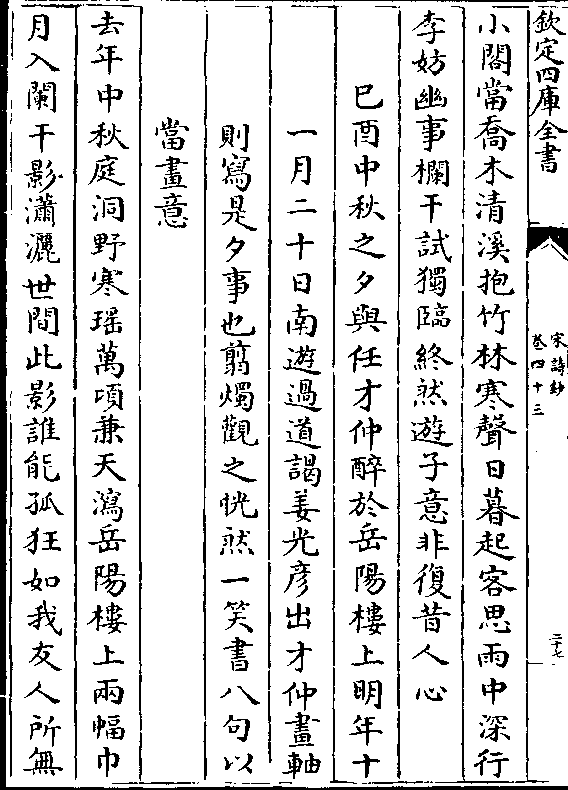 欽定四庫全書
宋詩鈔
卷四十三
二十七
小閣當喬木清溪抱竹林寒聲日暮起客思雨中深行
李妨幽事欄干試獨臨終然遊子意非復昔人心
巳酉中秋之夕與任才仲醉於岳陽樓上明年十
一月二十日南遊過道謁姜光彦出才仲畫軸
則寫是夕事也翦燭觀之恍然一笑書八句以
當畫意
去年中秋庭洞野寒瑶萬頃兼天瀉岳陽樓上兩幅巾
月入闌干影瀟灑世間此影誰能孤狂如我友人所無